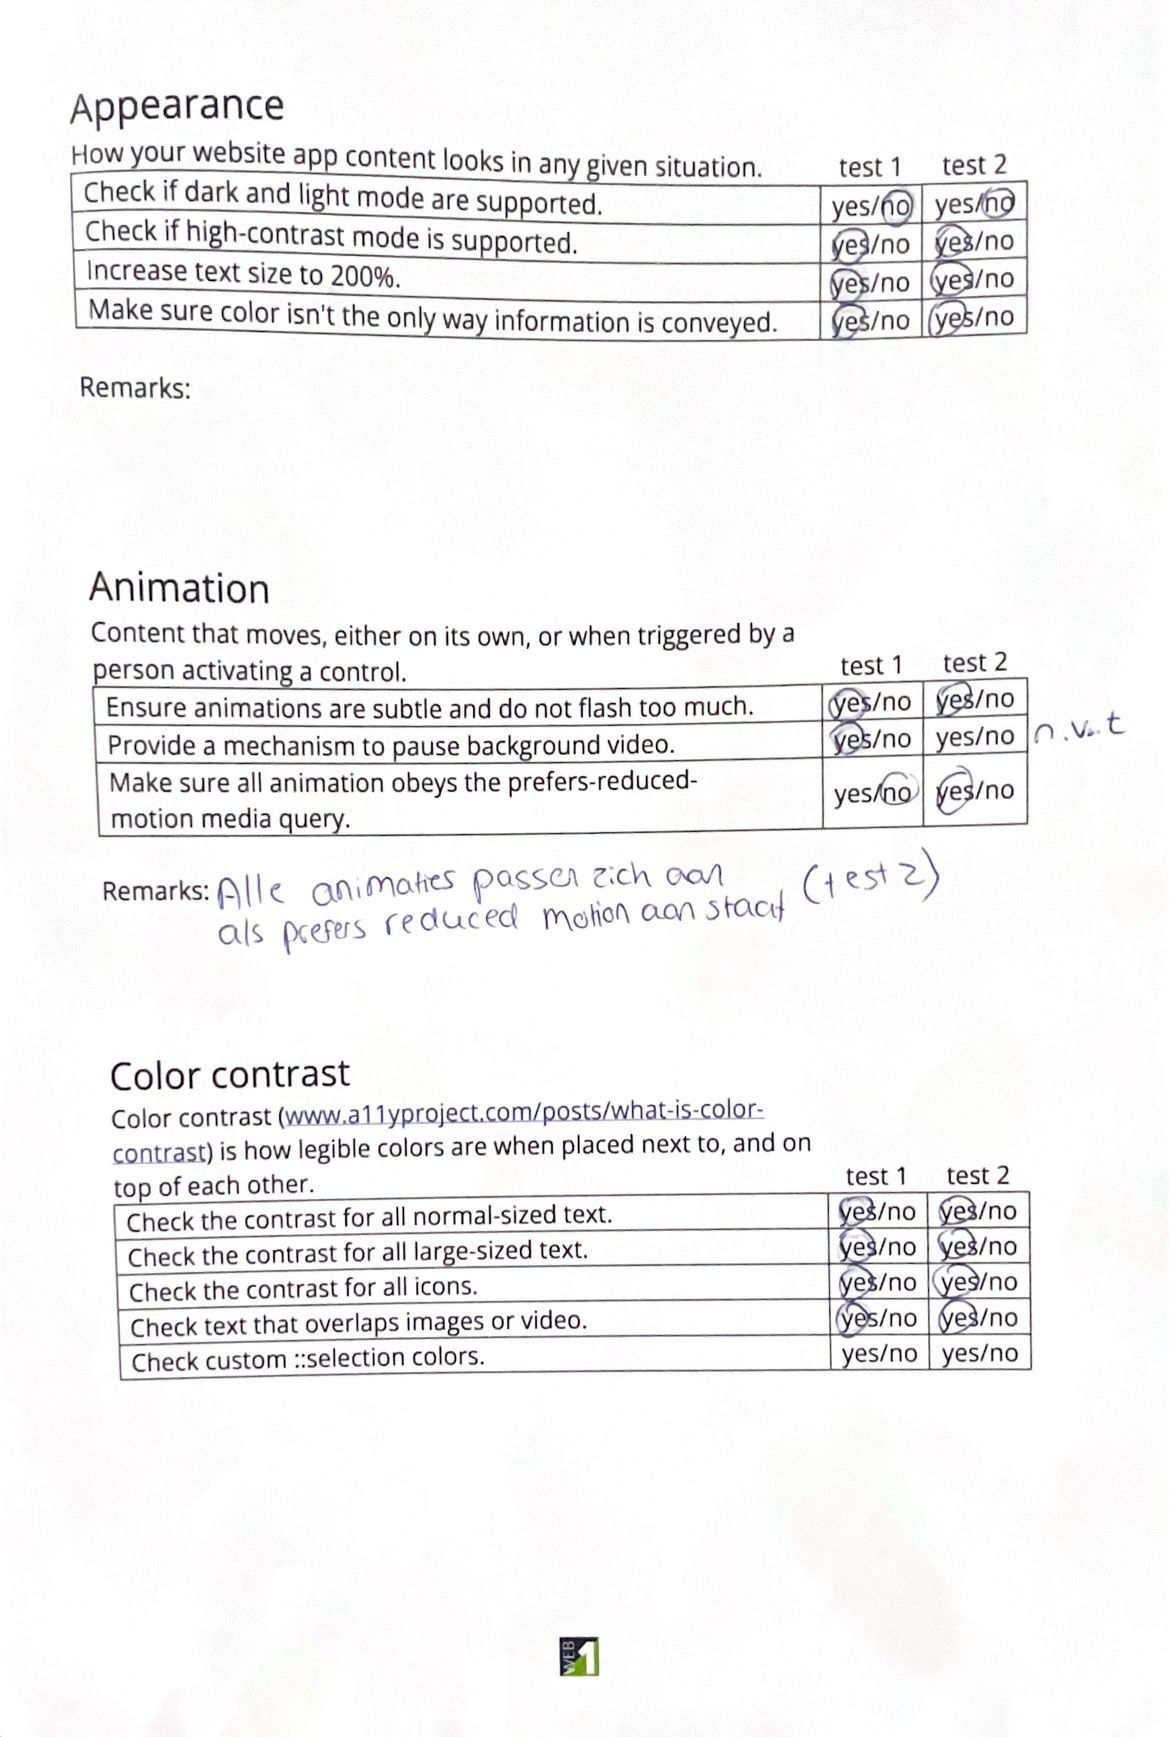 Appearance
How your website app content looks in any given situation. test 1 test 2
Check if dark and light mode are supported. yes/no yes/no
Check if high-contrast mode is supported. yes/no yes/no
Increase text size to 200%. yes/no yes/no
Make sure color isn't the only way information is conveyed. yes/no yes/no
Remarks:
Animation
Content that moves, either on its own, or when triggered by a
person activating a control. test 1 test 2
Ensure animations are subtle and do not flash too much. yes/no yes/no
Provide a mechanism to pause background video. yes/no yes/no n.v.t
Make sure all animation obeys the prefers-reduced-
motion media query. yes/no yes/no
Remarks: Alle animaties passen zich aan (test 2)
als prefers reduced motion aan staat
Color contrast
Color contrast (www.a11yproject.com/posts/what-is-color-
contrast) is how legible colors are when placed next to, and on
top of each other. test 1 test 2
Check the contrast for all normal-sized text. yes/no yes/no
Check the contrast for all large-sized text. yes/no yes/no
Check the contrast for all icons. yes/no yes/no
Check text that overlaps images or video. yes/no yes/no
Check custom ::selection colors. yes/no yes/no
WEB 1